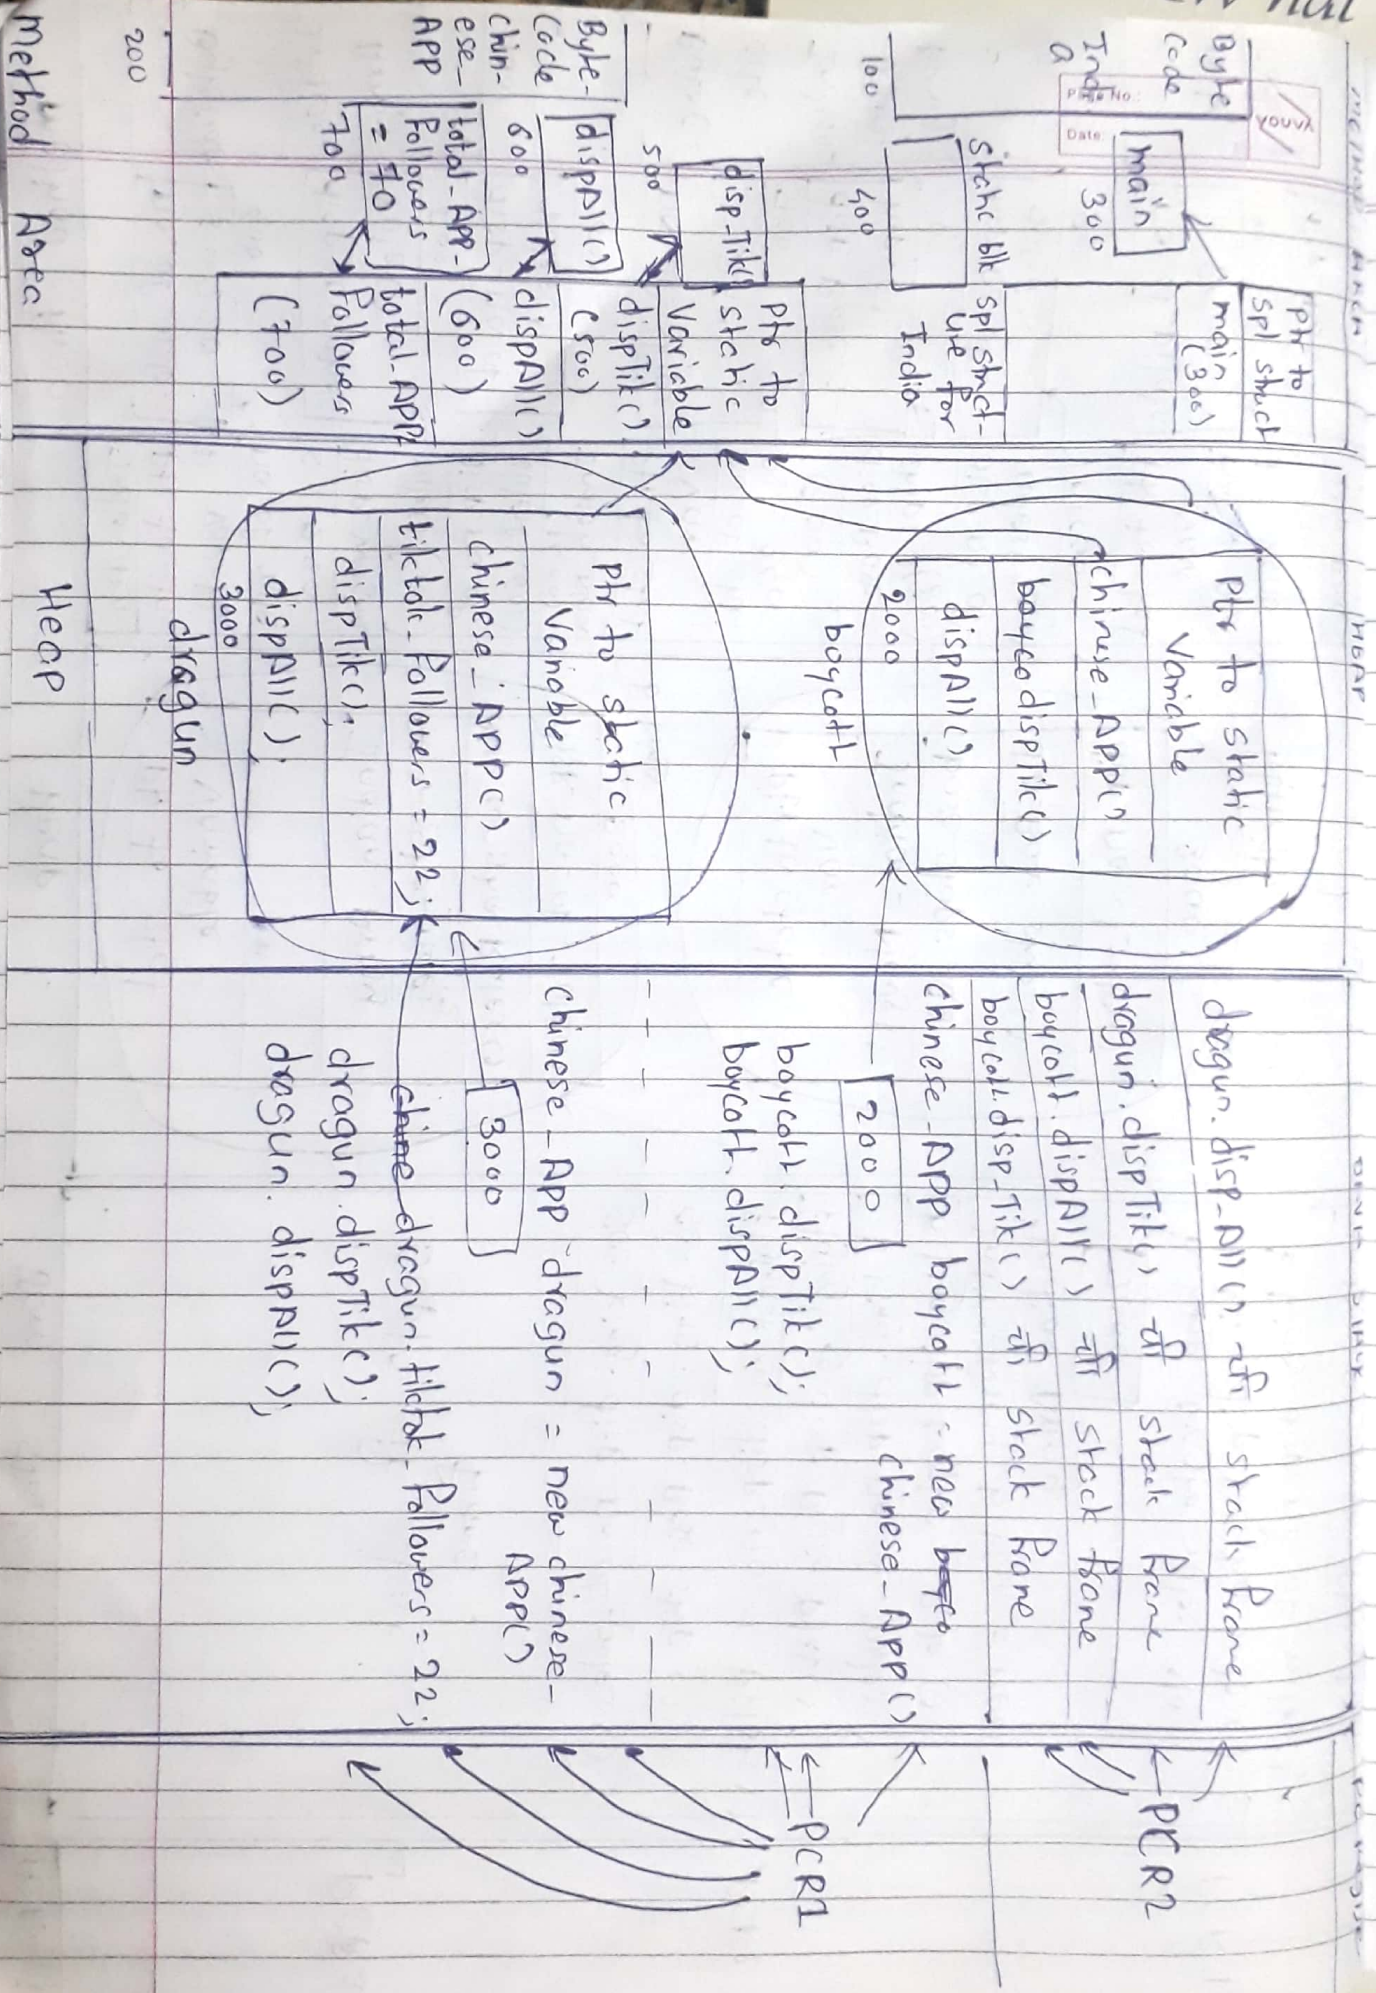 Method Area
Byte
Code
Ind
a
100
main
300
static blk
400
ptr to
spl struct
main
(300)
spl struct-
ure for
India
Byte-
Code
chin-
ese_
APP
200
disp_Tik()
500
dispAll()
600
total_App_
followers
= 70
700
ptr to
static
Variable
dispTik()
(500)
dispAll()
(600)
total_APP_
followers
(700)
Method Area
Ptr to static
Variable
chinese_App()
boyco dispTik()
dispAll()
2000
boycott
Ptr to static
Variable
chinese_App()
tiktok_followers = 22;
dispTik();
dispAll();
3000
dragun
Heap
dragun.disp_All() ची stack frame
dragun.dispTik() ची stack frame
boycott.dispAll() ची stack frame
boycott.disp_Tik() ची stack frame
chinese_App boycott = new boyco
chinese_App()
2000
boycott.dispTik();
boycott.dispAll();
chinese_App dragun = new chinese_
App()
3000
chine dragun.tiktok_followers = 22;
dragun.dispTik();
dragun.dispAll();
PCR2
PCR1
YOUVA
Page No:
Date: